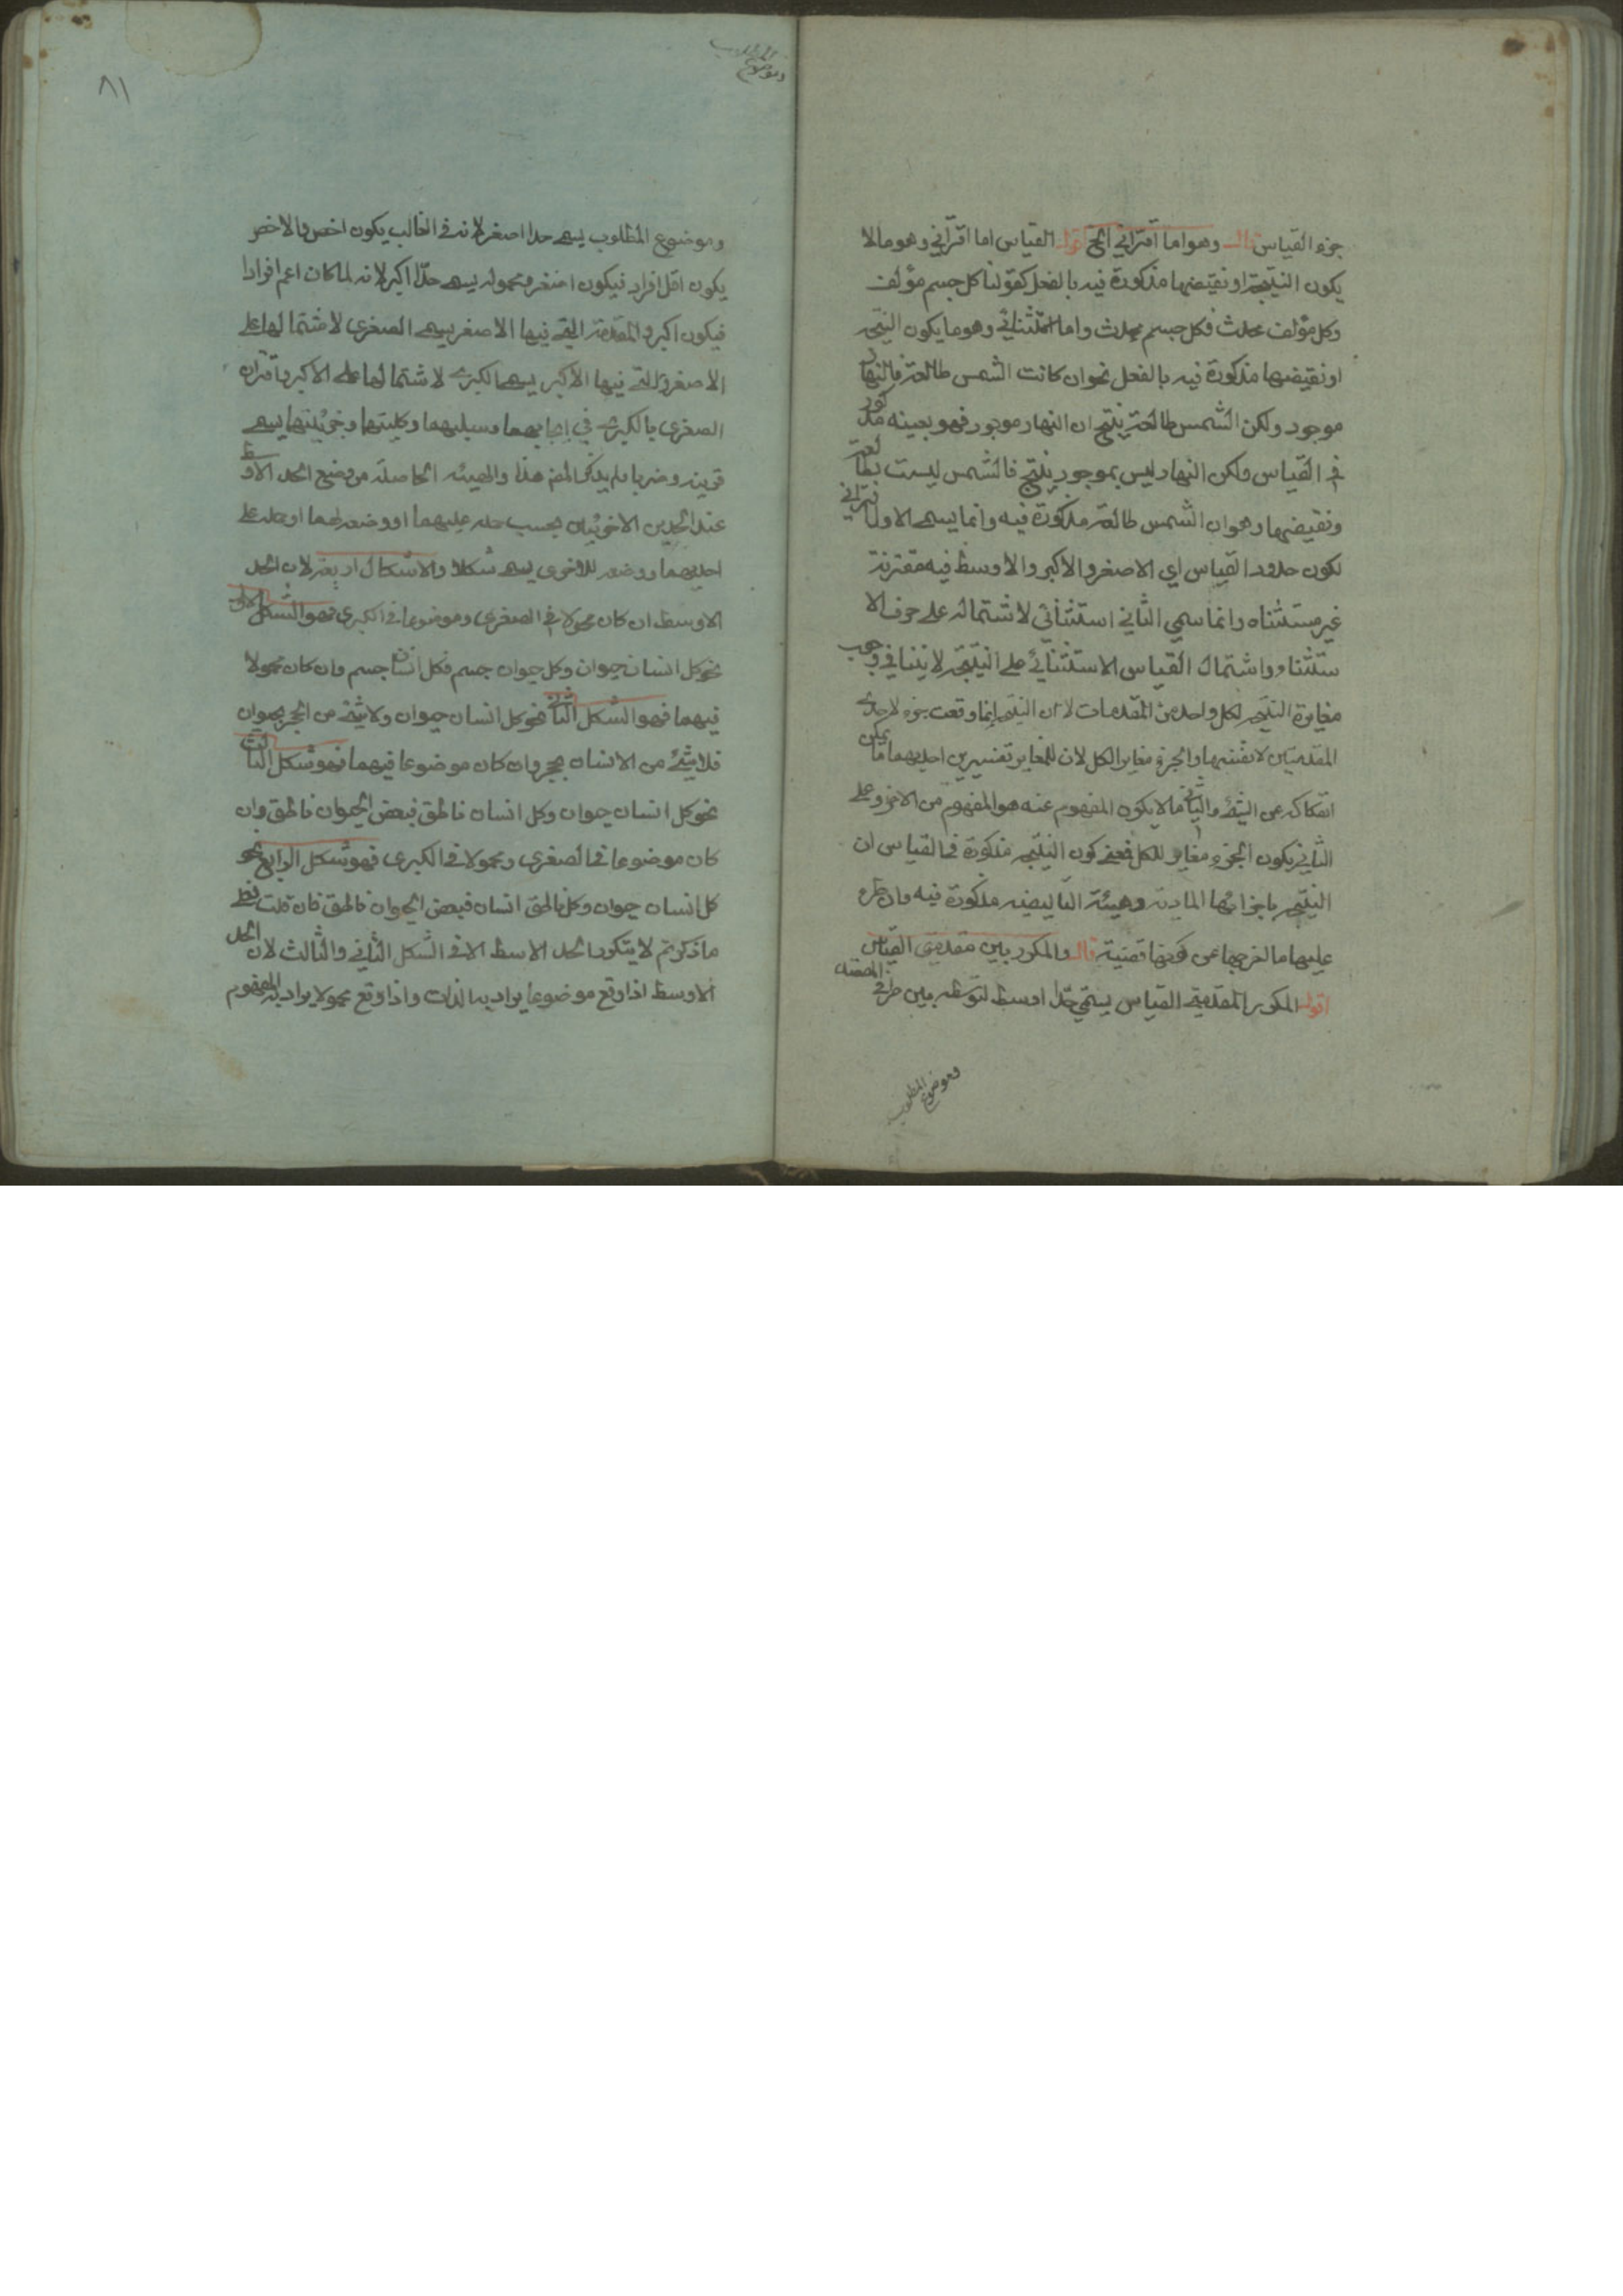 جزء القياس قال وهو اما اقتراني الخ اقول القياس اما اقتراني وهو ما لا
يكون النتيجة او نقيضها مذكورة فيه بالفعل كقولنا كل جسم مؤلف
وكل مؤلف محدث فكل جسم محدث واما استثنائي وهو ما يكون النتيجة
او نقيضها مذكورة فيه بالفعل نحو ان كانت الشمس طالعة فالنهار
موجود ولكن الشمس طالعة ينتج ان النهار موجود فهو بعينه مذكور
في القياس ولكن النهار ليس بموجود ينتج فالشمس ليست بطالعة
ونقيضها وهو ان الشمس طالعة مذكورة فيه وانما يسمى الاول اقتراني
لكون حدود القياس اي الاصغر والاكبر والاوسط فيه مقترنة
غير مستثناه وانما سمي الثاني استثنائي لاشتماله على حرف الا
ستثناء واشتمال القياس الاستثنائي على النتيجة لا ينافي وجوب
مغايرة النتيجة لكل واحد من المقدمات لان النتيجة انما وقعت جزء لاحدى
المقدمتين لا نفسها والجزء مغاير الكل لان للمغاير تفسيرين احديهما ما يمكن
انفكاكه عن الشئ والثاني ما لا يكون المفهوم عنه هو المفهوم من الاخر وعلى
الثاني يكون الجزء مغاير للكل فمعنى كون النتيجة مذكورة في القياس ان
النتيجة باجزائها المادية وهيئة التاليفية مذكورة فيه وان طرء
عليها ما اخرجها عن كونها قضية قال والمكرر بين مقدمتي القياس
اقول المكرر المقدمتي القياس يسمى حدّا اوسط لتوسطه بين طرفي
وموضوع المطلوب
٨١
وموضوع المطلوب يسمى حدا اصغر لانه في الغالب يكون اخص والاخص
يكون اقل افراد فيكون اصغر ومحموله يسمى حدّا اكبر لانه لما كان اعم افرادا
فيكون اكبر والمقدمة التي فيها الاصغر يسمى الصغرى لاشتمالها على
الاصغر والتي فيها الاكبر يسمى الكبرى لاشتمالها على الاكبر واقتران
الصغرى بالكبرى في ايجابهما وسلبهما وكليتهما وجزئيتهما يسمى
قرينة وضربا ولم يذكر المص هذا والهيئة الحاصلة من وضع الحد الاوسط
عند الحدين الاخريين بحسب حمله عليهما او وضعه لهما او حمله على
احديهما ووضعه للاخرى يسمى شكلا والاشكال اربعة لان الحد
الاوسط ان كان محمولا في الصغرى وموضوعا في الكبرى فهو الشكل الاول
نحو كل انسان حيوان وكل حيوان جسم فكل انسان جسم وان كان محمولا
فيهما فهو الشكل الثاني نحو كل انسان حيوان ولا شئ من الحجر بحيوان
فلا شئ من الانسان بحجر وان كان موضوعا فيهما فهو شكل الثالث
نحو كل انسان حيوان وكل انسان ناطق فبعض الحيوان ناطق وان
كان موضوعا في الصغرى ومحمولا في الكبرى فهو شكل الرابع نحو
كل انسان حيوان وكل ناطق انسان فبعض الحيوان ناطق فان قلت فعلى
ما ذكرتم لا يتكرر الحد الاسط الا في الشكل الثاني والثالث لان الحد
الاوسط اذا وقع موضوعا يراد به الذات واذا وقع محمولا يراد به المفهوم